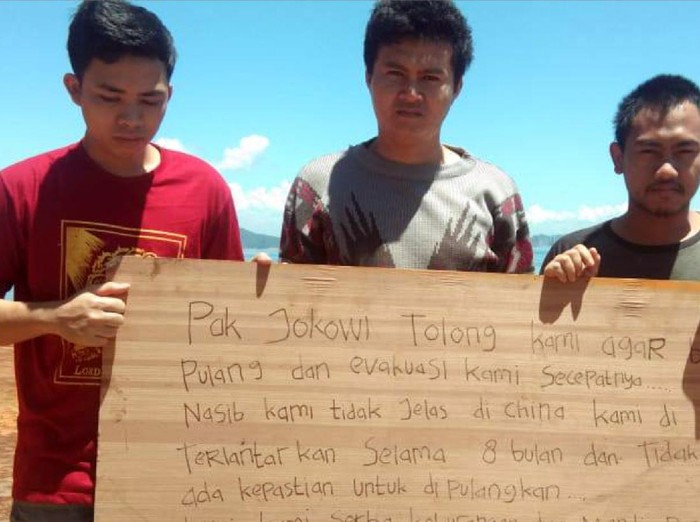 Pak Jokowi Tolong kami agar
Pulang dan evakuasi kami Secepatnya.....
Nasib kami tidak Jelas di China kami di
Terlantarkan Selama 8 bulan dan Tidak
ada kepastian untuk di pulangkan...
kami serba